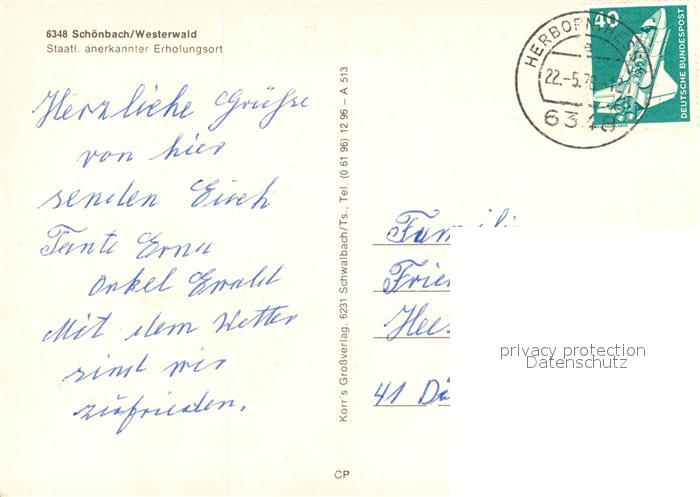 6348 Schönbach/Westerwald
Staatl. anerkannter Erholungsort
Herzliche Grüße
von hier
senden Euch
Tante Erna
Onkel Ewald
Mit dem Wetter
sind wir
zufrieden.
Korr's Großverlag, 6231 Schwalbach/Ts., Tel. (0 61 96) 12 96 – A 513
CP
40
DEUTSCHE BUNDESPOST
HERBORN
22.-5.78
6348
Familie
Frie
Hees
41
privacy protection
Datenschutz